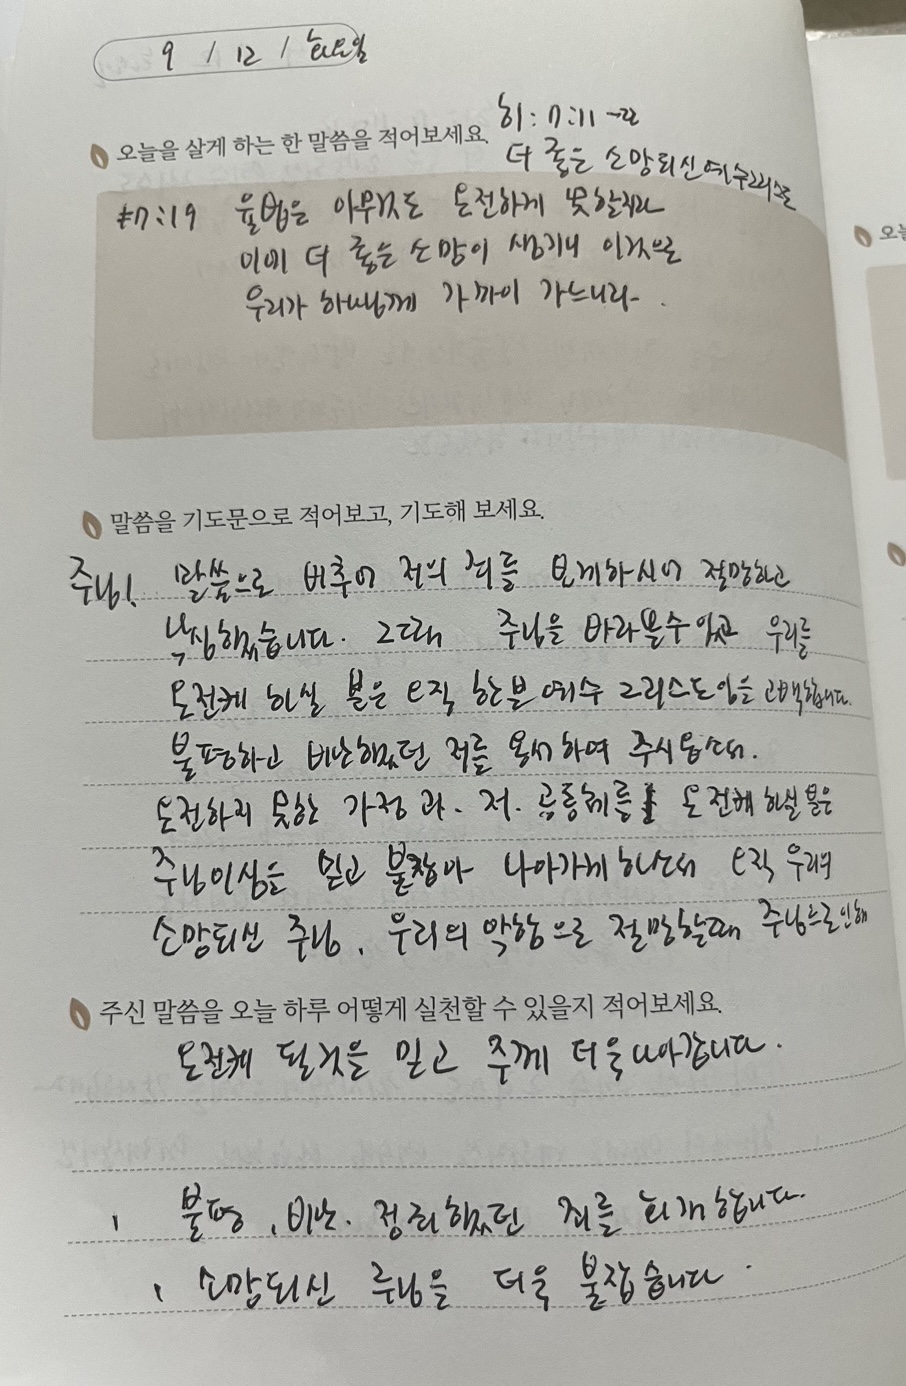 9 / 12 / 화요일
히 : 7:11 ~22
오늘을 살게 하는 한 말씀을 적어보세요.
더 좋은 소망되신 예수그리스도
*7:19 율법은 아무것도 온전하게 못할지라
이에 더 좋은 소망이 생기니 이것으로
우리가 하나님께 가까이 가느니라.
말씀을 기도문으로 적어보고, 기도해 보세요.
주님! 말씀으로 비추어 저의 죄를 보게하시어 절망하고
낙심했습니다. 그때 주님을 바라볼수 있고 우리를
온전케 하실 분은 오직 한분 예수 그리스도임을 고백합니다.
불평하고 비난했던 저를 용서하여 주시옵소서.
온전하지 못한 가정과. 저. 공동체를 온전케 하실 분은
주님이심을 믿고 붙잡아 나아가게 하소서 오직 우리의
소망되신 주님, 우리의 악함으로 절망할때 주님으로인해
주신 말씀을 오늘 하루 어떻게 실천할 수 있을지 적어보세요.
온전케 될것을 믿고 주께 더욱 나아갑니다.
불평, 비난. 정죄했던 죄를 회개합니다.
소망되신 주님을 더욱 붙잡습니다.